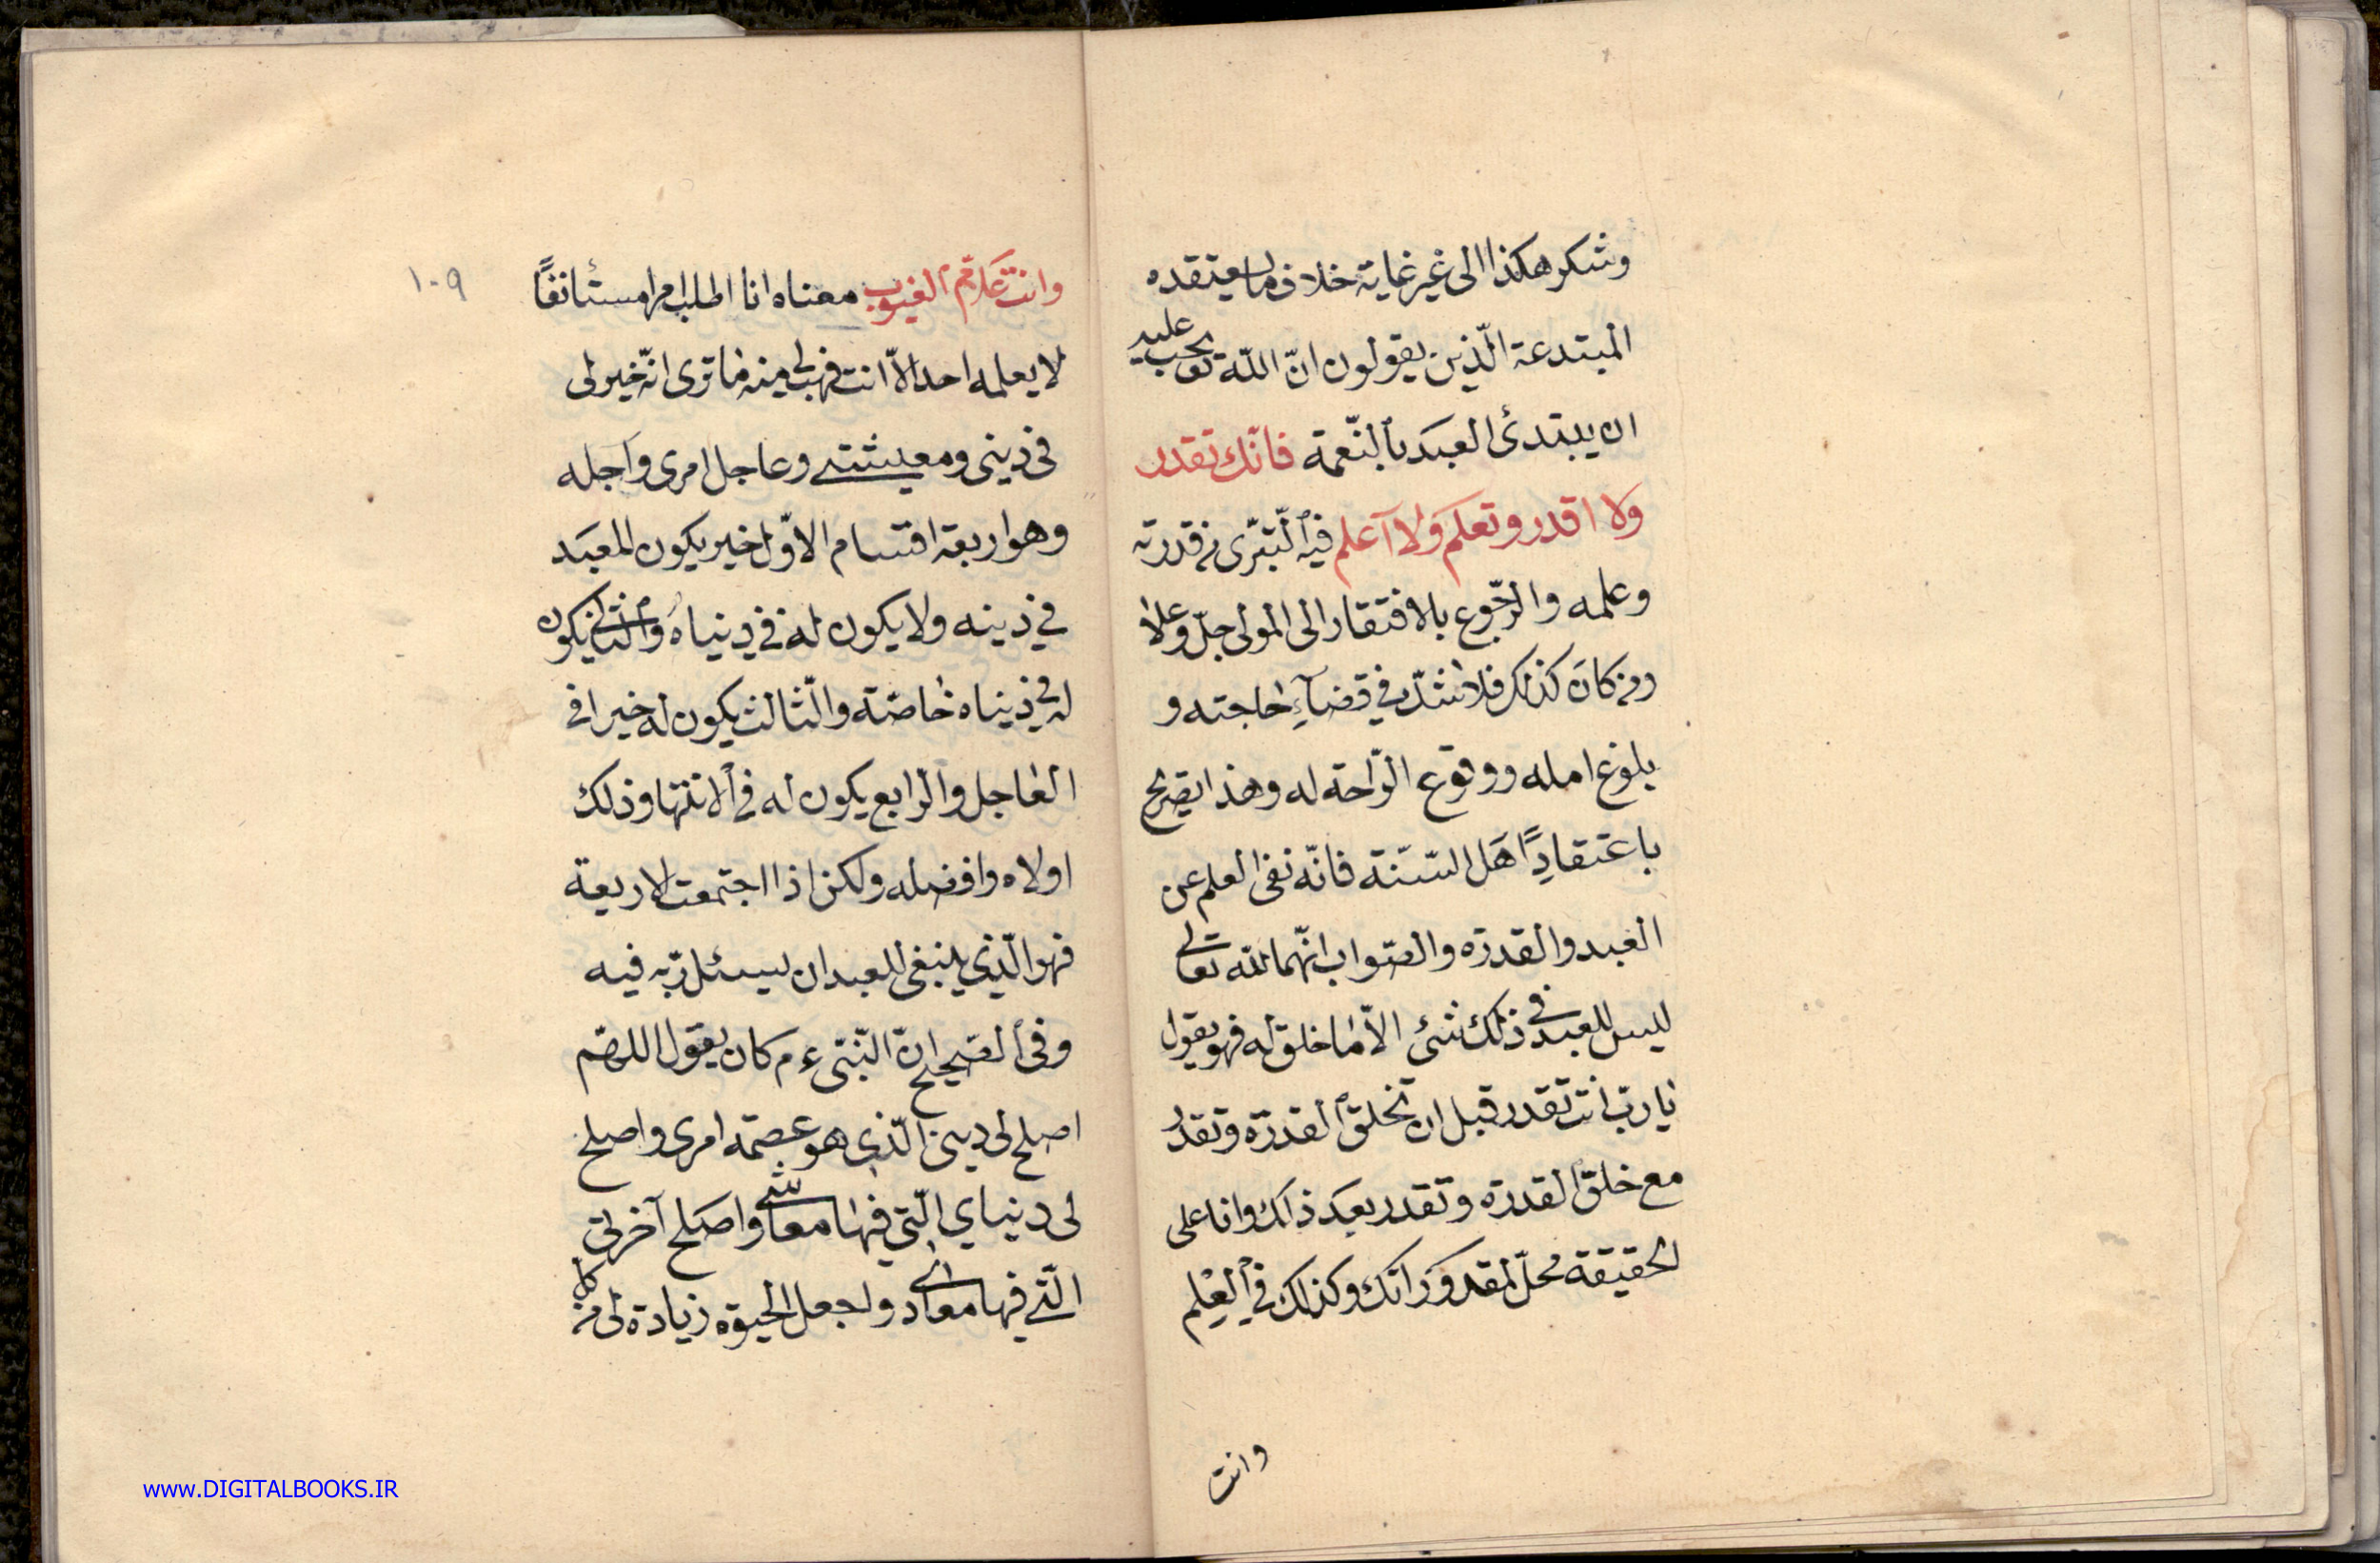 وشكر هكذا الى غير غاية خلاف ما يعتقده
المبتدعة الّذين يقولون انّ اللّه تع يجب عليه
ان يبتدئ العبد بالنّعمة فانّك تقدر
ولا اقدر وتعلم ولا آعلم فيه التّبرّى من قدرته
وعلمه والرّجوع بالافتقار الى المولى جلّ وعلا
ومن كان كذلك فلا شكّ في قضآء حاجته و
بلوغ امله ووقوع الرّاحة له وهذا تصريح
باعتقاد اهل السّنّة فانّه نفى العلم عن
العبد والقدرة والصّواب انّهما للّه تعالى
ليس للعبد في ذلك شئ الاّ ما خلق له فهو يقول
يا ربّ انت تقدر قبل ان تخلق القدرة وتقدر
مع خلق القدرة وتقدر بعد ذلك وانا على
الحقيقة محلّ لمقدوراتك وكذلك في العلم
وانت
١٠٩
وانت علاّم الغيوب معناه انا اطلب امرا مستأنفًا
لا يعلمه احد الاّ انت فهب لى منه ما ترى انّه خير لى
في دينى ومعيشتى وعاجل امرى وآجله
وهو اربعة اقسام الاوّل خير يكون للعبد
في دينه ولا يكون له في دنياه والثّانى يكون
له في دنياه خاصّة والثّالث يكون له خيرا في
العاجل والرّابع يكون له في الانتها وذلك
اولاه وافضله ولكن اذا اجتمعت الاربعة
فهو الّذى ينبغى للعبد ان يسئل ربّه فيه
وفى الصّحيح انّ النّبى ءم كان يقول اللهمّ
اصلح لى دينى الّذى هو عصمة امرى واصلح
لى دنياي الّتي فيها معاشى واصلح آخرتي
الّتي فيها معادى واجعل الحيوة زيادة لى من كل
www.DIGITALBOOKS.IR